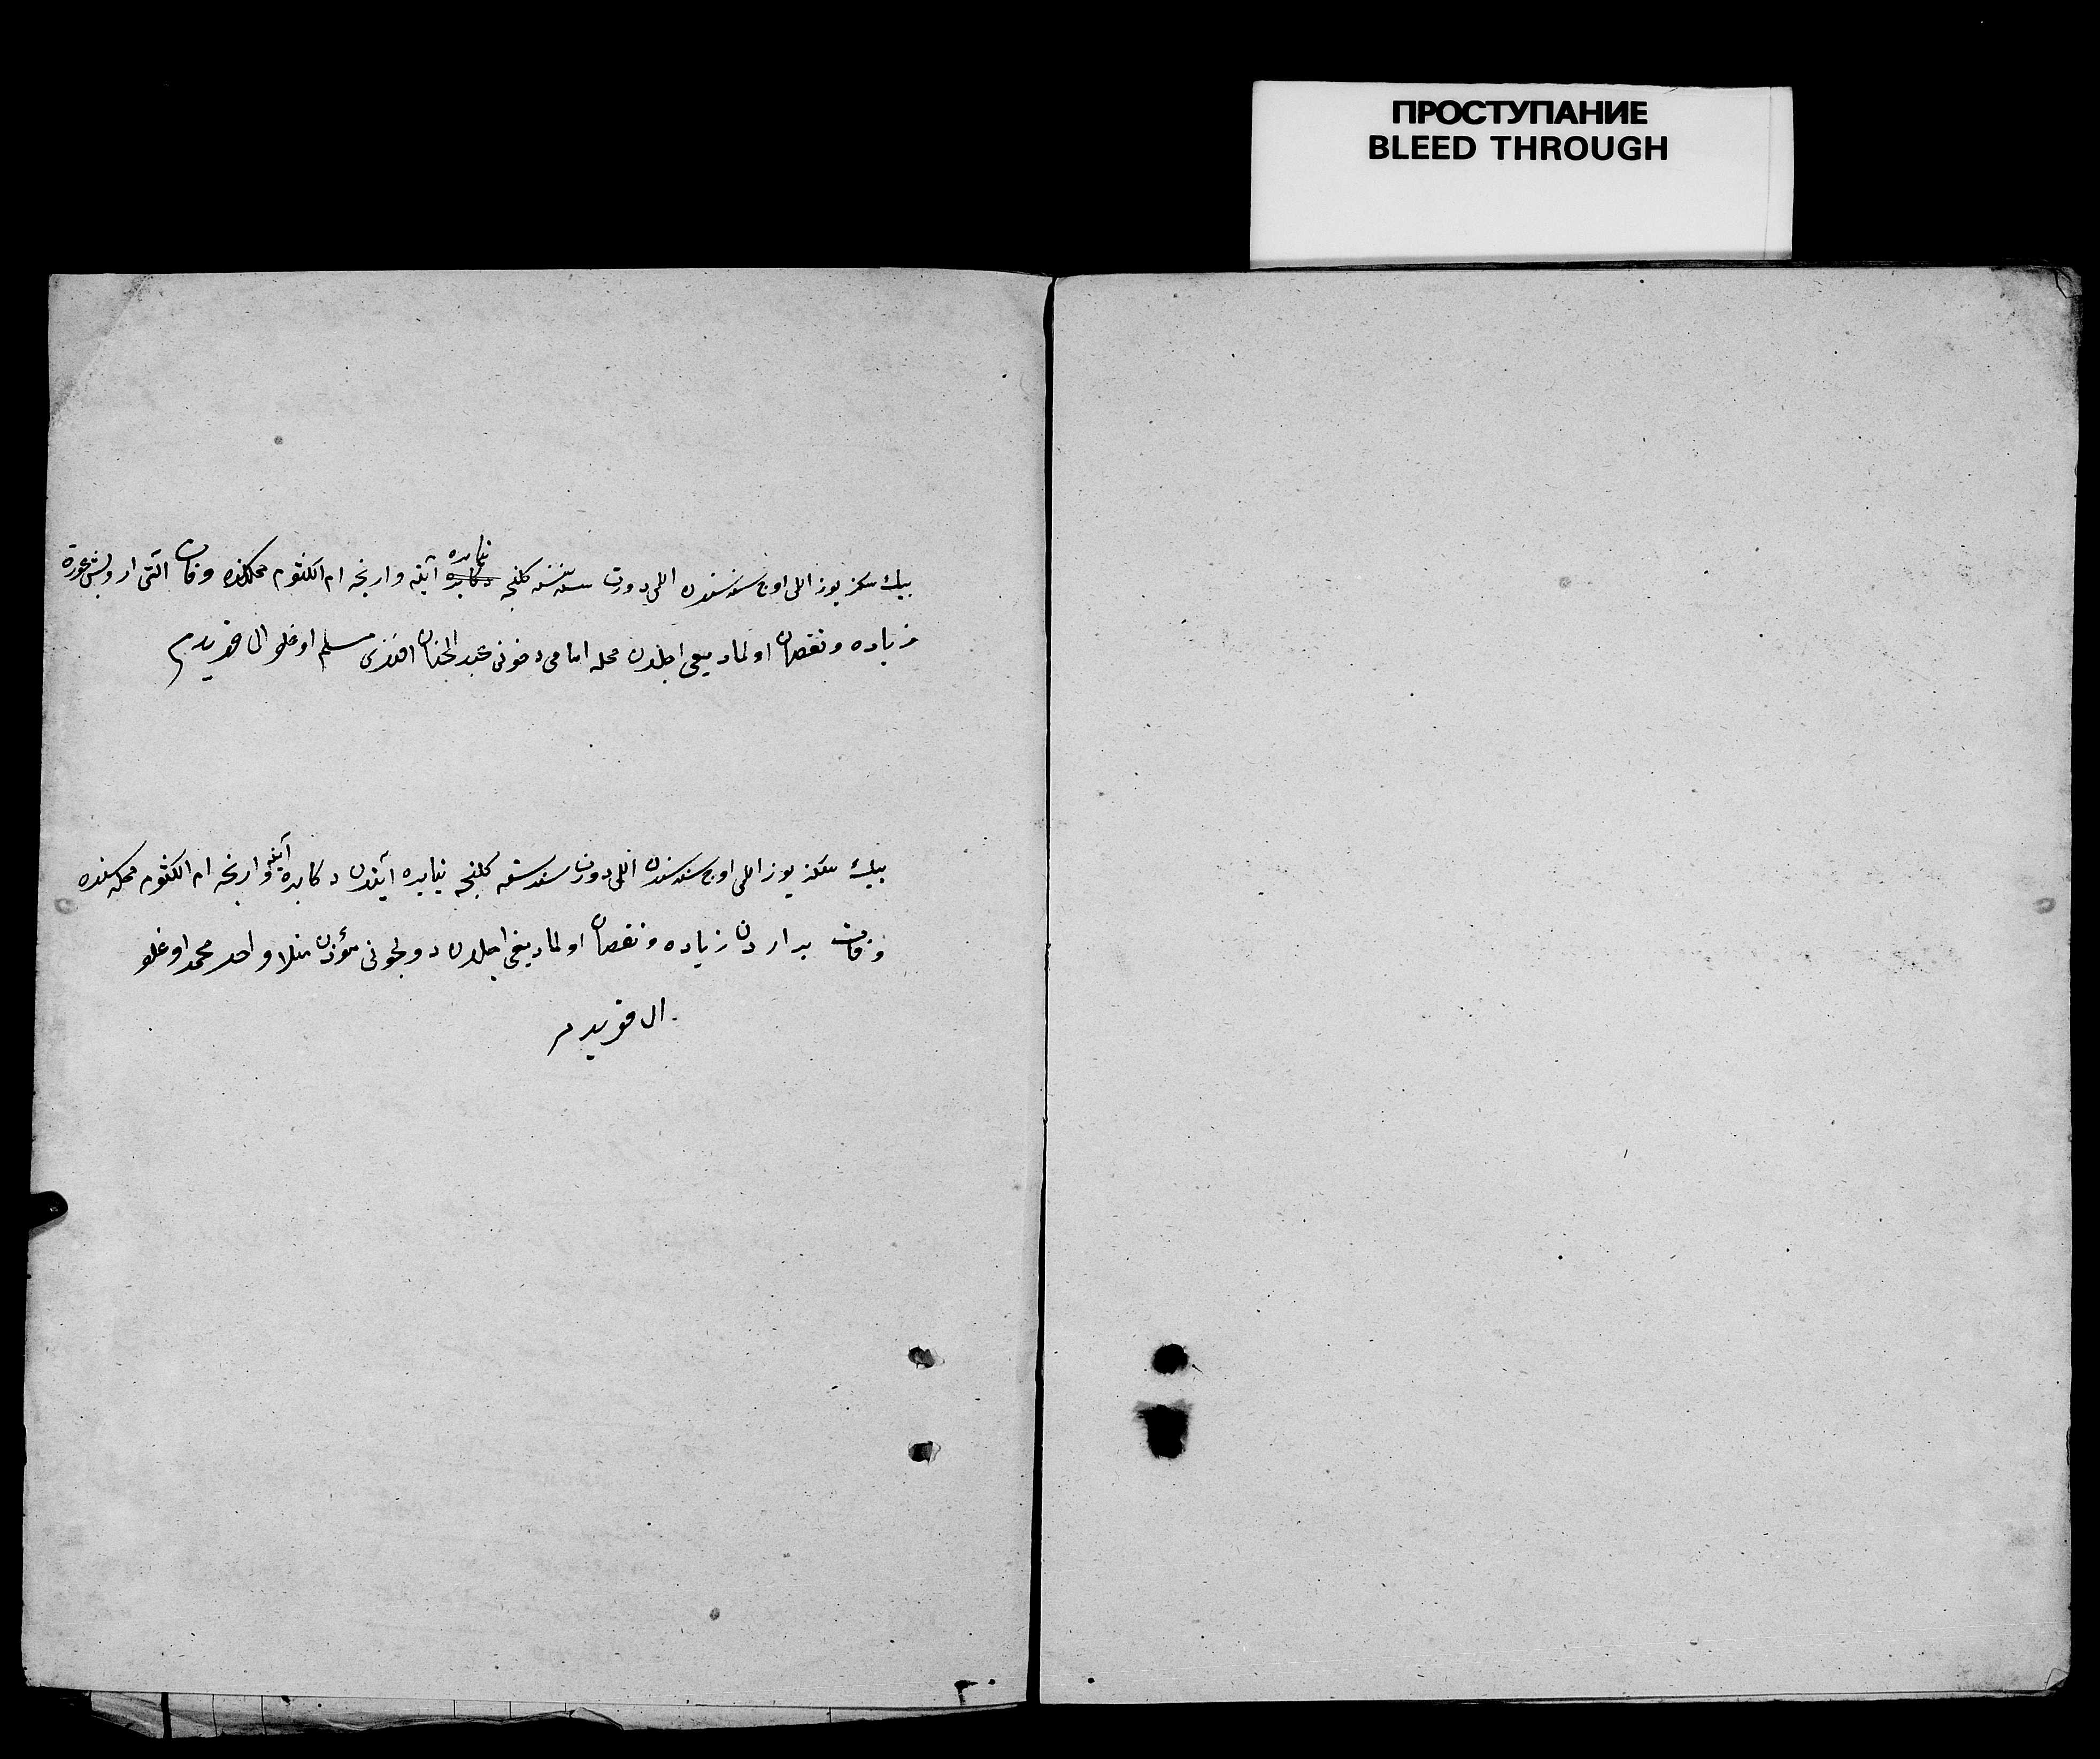 ПРОСТУПАНИЕ
BLEED THROUGH
بيك سكز يوز اللی اوچ سنه سندن اللی دورت سنه سنه كلنجه ينايره آينه وارنجه ام الكلثوم محله سنده وفات التی ار وبش عورة
زياده ونقصان اولماديغی اجلدن محله امامی عبد الحنان افندی مسلم اوغلو ال قويدم
بيك سكز يوز اللی اوچ سنه سندن اللی دورت سنه سنه كلنجه ينايره آيندن دكابره آينه وارنجه ام الكلثوم محله سنده
وفات بر اردن زياده ونقصان اولماديغی اجلدن مؤذن منلا واحد محمد اوغلو
ال قويدم